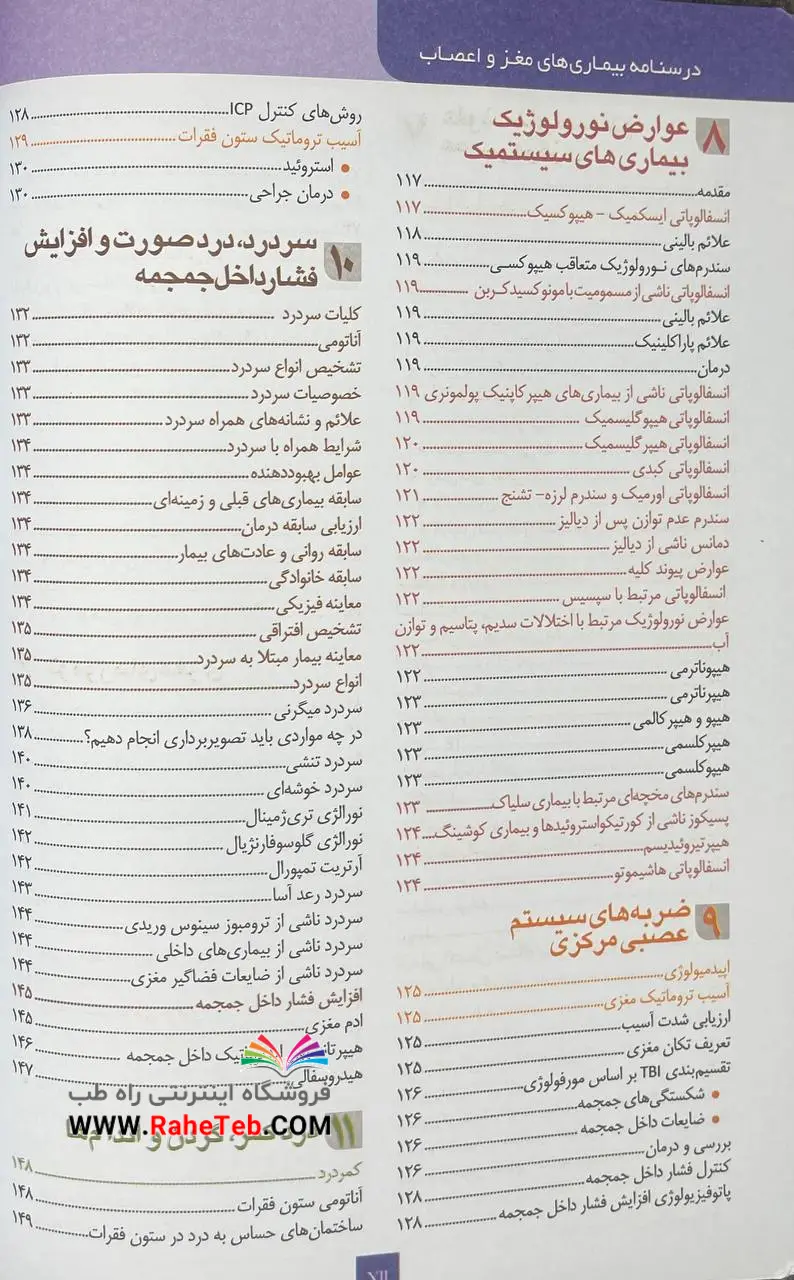 درسنامه بیماری‌های مغز و اعصاب
۸ عوارض نورولوژیک
بیماری‌های سیستمیک
مقدمه ۱۱۷
انسفالوپاتی ایسکمیک - هیپوکسیک ۱۱۷
علائم بالینی ۱۱۸
سندرم‌های نورولوژیک متعاقب هیپوکسی ۱۱۹
انسفالوپاتی ناشی از مسمومیت با مونوکسید کربن ۱۱۹
علائم بالینی ۱۱۹
علائم پاراکلینیک ۱۱۹
درمان ۱۱۹
انسفالوپاتی ناشی از بیماری‌های هیپرکاپنیک پولمونری ۱۱۹
انسفالوپاتی هیپوگلیسمیک ۱۱۹
انسفالوپاتی هیپرگلیسمیک ۱۲۰
انسفالوپاتی کبدی ۱۲۰
انسفالوپاتی اورمیک و سندرم لرزه- تشنج ۱۲۱
سندرم عدم توازن پس از دیالیز ۱۲۲
دمانس ناشی از دیالیز ۱۲۲
عوارض پیوند کلیه ۱۲۲
انسفالوپاتی مرتبط با سپسیس ۱۲۲
عوارض نورولوژیک مرتبط با اختلالات سدیم، پتاسیم و توازن
آب ۱۲۲
هیپوناترمی ۱۲۲
هیپرناترمی ۱۲۳
هیپو و هیپرکالمی ۱۲۳
هیپرکلسمی ۱۲۳
هیپوکلسمی ۱۲۳
سندرم‌های مخچه‌ای مرتبط با بیماری سلیاک ۱۲۳
پسیکوز ناشی از کورتیکواستروئیدها و بیماری کوشینگ ۱۲۴
هیپرتیروئیدیسم ۱۲۴
انسفالوپاتی هاشیموتو ۱۲۴
۹ ضربه‌های سیستم
عصبی مرکزی
اپیدمیولوژی ۱۲۵
آسیب تروماتیک مغزی ۱۲۵
ارزیابی شدت آسیب ۱۲۵
تعریف تکان مغزی ۱۲۵
تقسیم‌بندی TBI بر اساس مورفولوژی ۱۲۶
• شکستگی‌های جمجمه ۱۲۶
• ضایعات داخل جمجمه ۱۲۶
بررسی و درمان ۱۲۶
کنترل فشار داخل جمجمه ۱۲۸
پاتوفیزیولوژی افزایش فشار داخل جمجمه ۱۲۸
روش‌های کنترل ICP ۱۲۸
آسیب تروماتیک ستون فقرات ۱۲۹
• استروئید ۱۳۰
• درمان جراحی ۱۳۰
۱۰ سردرد، درد صورت و افزایش
فشار داخل جمجمه
کلیات سردرد ۱۳۲
آناتومی ۱۳۲
تشخیص انواع سردرد ۱۳۳
خصوصیات سردرد ۱۳۳
علائم و نشانه‌های همراه سردرد ۱۳۳
شرایط همراه با سردرد ۱۳۴
عوامل بهبوددهنده ۱۳۴
سابقه بیماری‌های قبلی و زمینه‌ای ۱۳۴
ارزیابی سابقه درمان ۱۳۴
سابقه روانی و عادت‌های بیمار ۱۳۴
سابقه خانوادگی ۱۳۴
معاینه فیزیکی ۱۳۴
تشخیص افتراقی ۱۳۵
معاینه بیمار مبتلا به سردرد ۱۳۵
انواع سردرد ۱۳۵
سردرد میگرنی ۱۳۶
در چه مواردی باید تصویربرداری انجام دهیم؟ ۱۳۸
سردرد تنشی ۱۴۰
سردرد خوشه‌ای ۱۴۰
نورالژی تری‌ژمینال ۱۴۱
نورالژی گلوسوفارنژیال ۱۴۲
آرتریت تمپورال ۱۴۲
سردرد رعد آسا ۱۴۳
سردرد ناشی از ترومبوز سینوس وریدی ۱۴۴
سردرد ناشی از بیماری‌های داخلی ۱۴۴
سردرد ناشی از ضایعات فضاگیر مغزی ۱۴۴
افزایش فشار داخل جمجمه ۱۴۵
ادم مغزی ۱۴۵
داخل جمجمه ۱۴۶
هیدروسفالی ۱۴۷
فروشگاه اینترنتی راه طب
WWW.RaheTeb.COM
۱۱ درد کمر، گردن و اندام‌ها
کمردرد ۱۴۸
آناتومی ستون فقرات ۱۴۸
ساختمان‌های حساس به درد در ستون فقرات ۱۴۹
XII